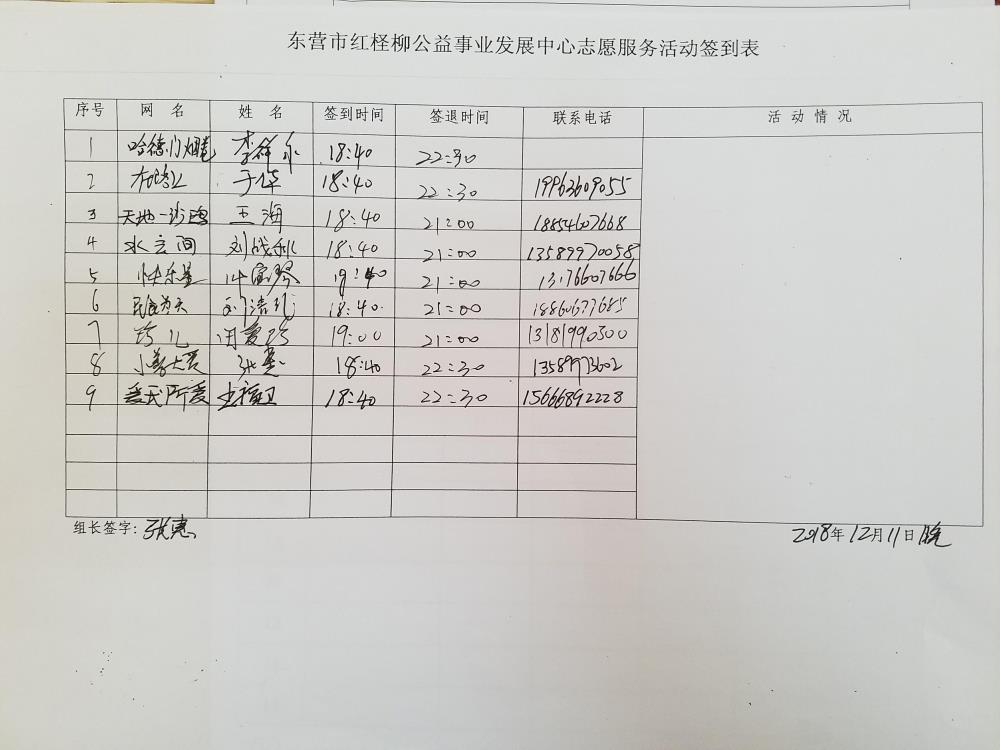 东营市红柽柳公益事业发展中心志愿服务活动签到表
序号 网 名 姓 名 签到时间 签退时间 联系电话 活 动 情 况
1 哈德门 李祥永 18:40 22:30
2 于华 18:40 22:30 19963609055
3 天地一沙鸥 王海 18:40 21:00 18854607668
4 水云间 刘战秋 18:40 21:00 13589970058
5 快乐星 19:40 21:00 13176607666
6 民食为天 18:40 21:00 18860677685
7 珍儿 闫爱珍 19:00 21:00 13181990300
8 小善大爱 张惠 18:40 22:30 1358973602
9 爱氏所爱 18:40 22:30 15666892228
组长签字: 张惠 2018年12月11日 晚